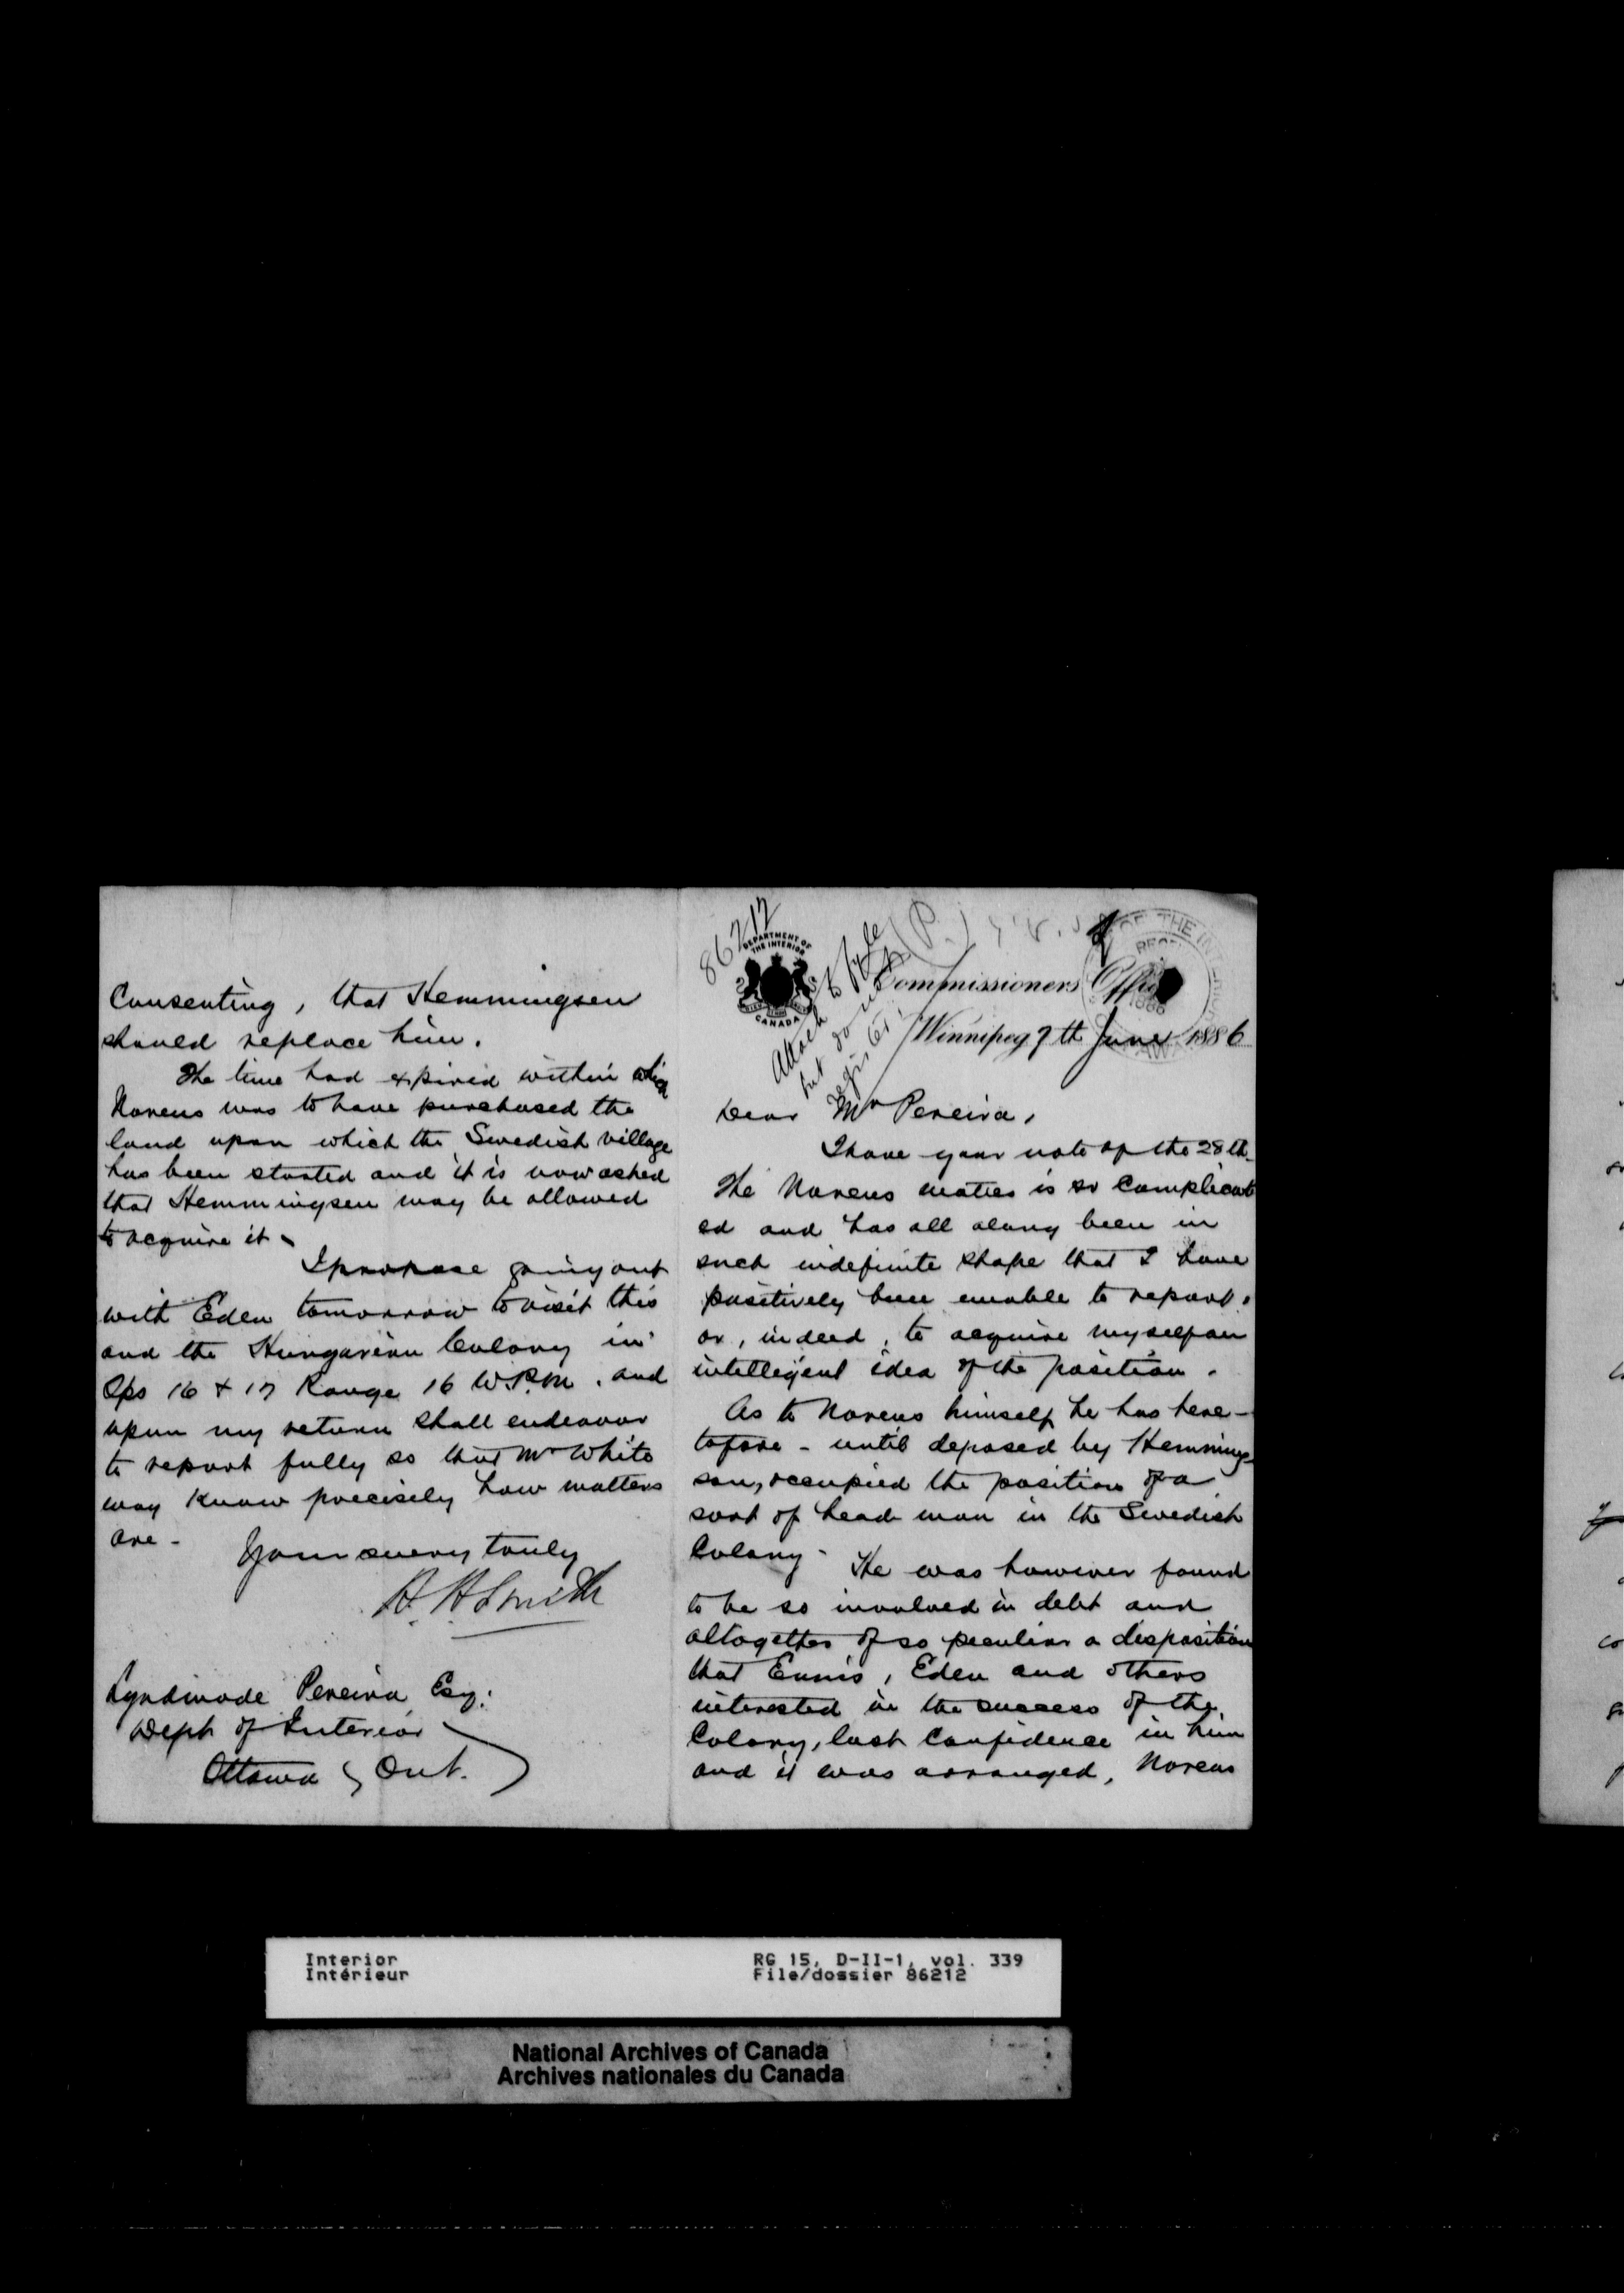 86212
DEPARTMENT OF
THE INTERIOR
CANADA
Attach to file
but do not
register
(P.)
Commissioners Office
Winnipeg 7th June 1886
Dear Mr Pereira,
I have your note of the 28th.
The Noreus matter is so complicat
ed and has all along been in
such indefinite shape that I have
positively been unable to report,
or, indeed, to acquire myself an
intelligent idea of the position.
As to Noreus himself he has here-
tofore - until deposed by Hemming-
son, occupied the position of a
sort of head man in the Swedish
Colony - He was however found
to be so involved in debt and
altogether of so peculiar a disposition
that Ennis, Eden and others
interested in the success of the
Colony, lost confidence in him
and it was arranged, Noreus
Consenting, that Hemmingsen
should replace him.
The time had expired within which
Noreus was to have purchased the
land upon which the Swedish village
has been started and it is now asked
that Hemmingsen may be allowed
to acquire it.
I propose going out
with Eden tomorrow to visit this
and the Hungarian Colony in
Tps 16 & 17 Range 16 W.P.M. and
upon my return shall endeavor
to report fully so that Mr White
may know precisely how matters
are -
Yours very truly
H. H. Smith
Lyndwode Pereira Esq:
Dept of Interior
Ottawa, Ont.
Interior
Intérieur
RG 15, D-II-1, vol. 339
File/dossier 86212
National Archives of Canada
Archives nationales du Canada